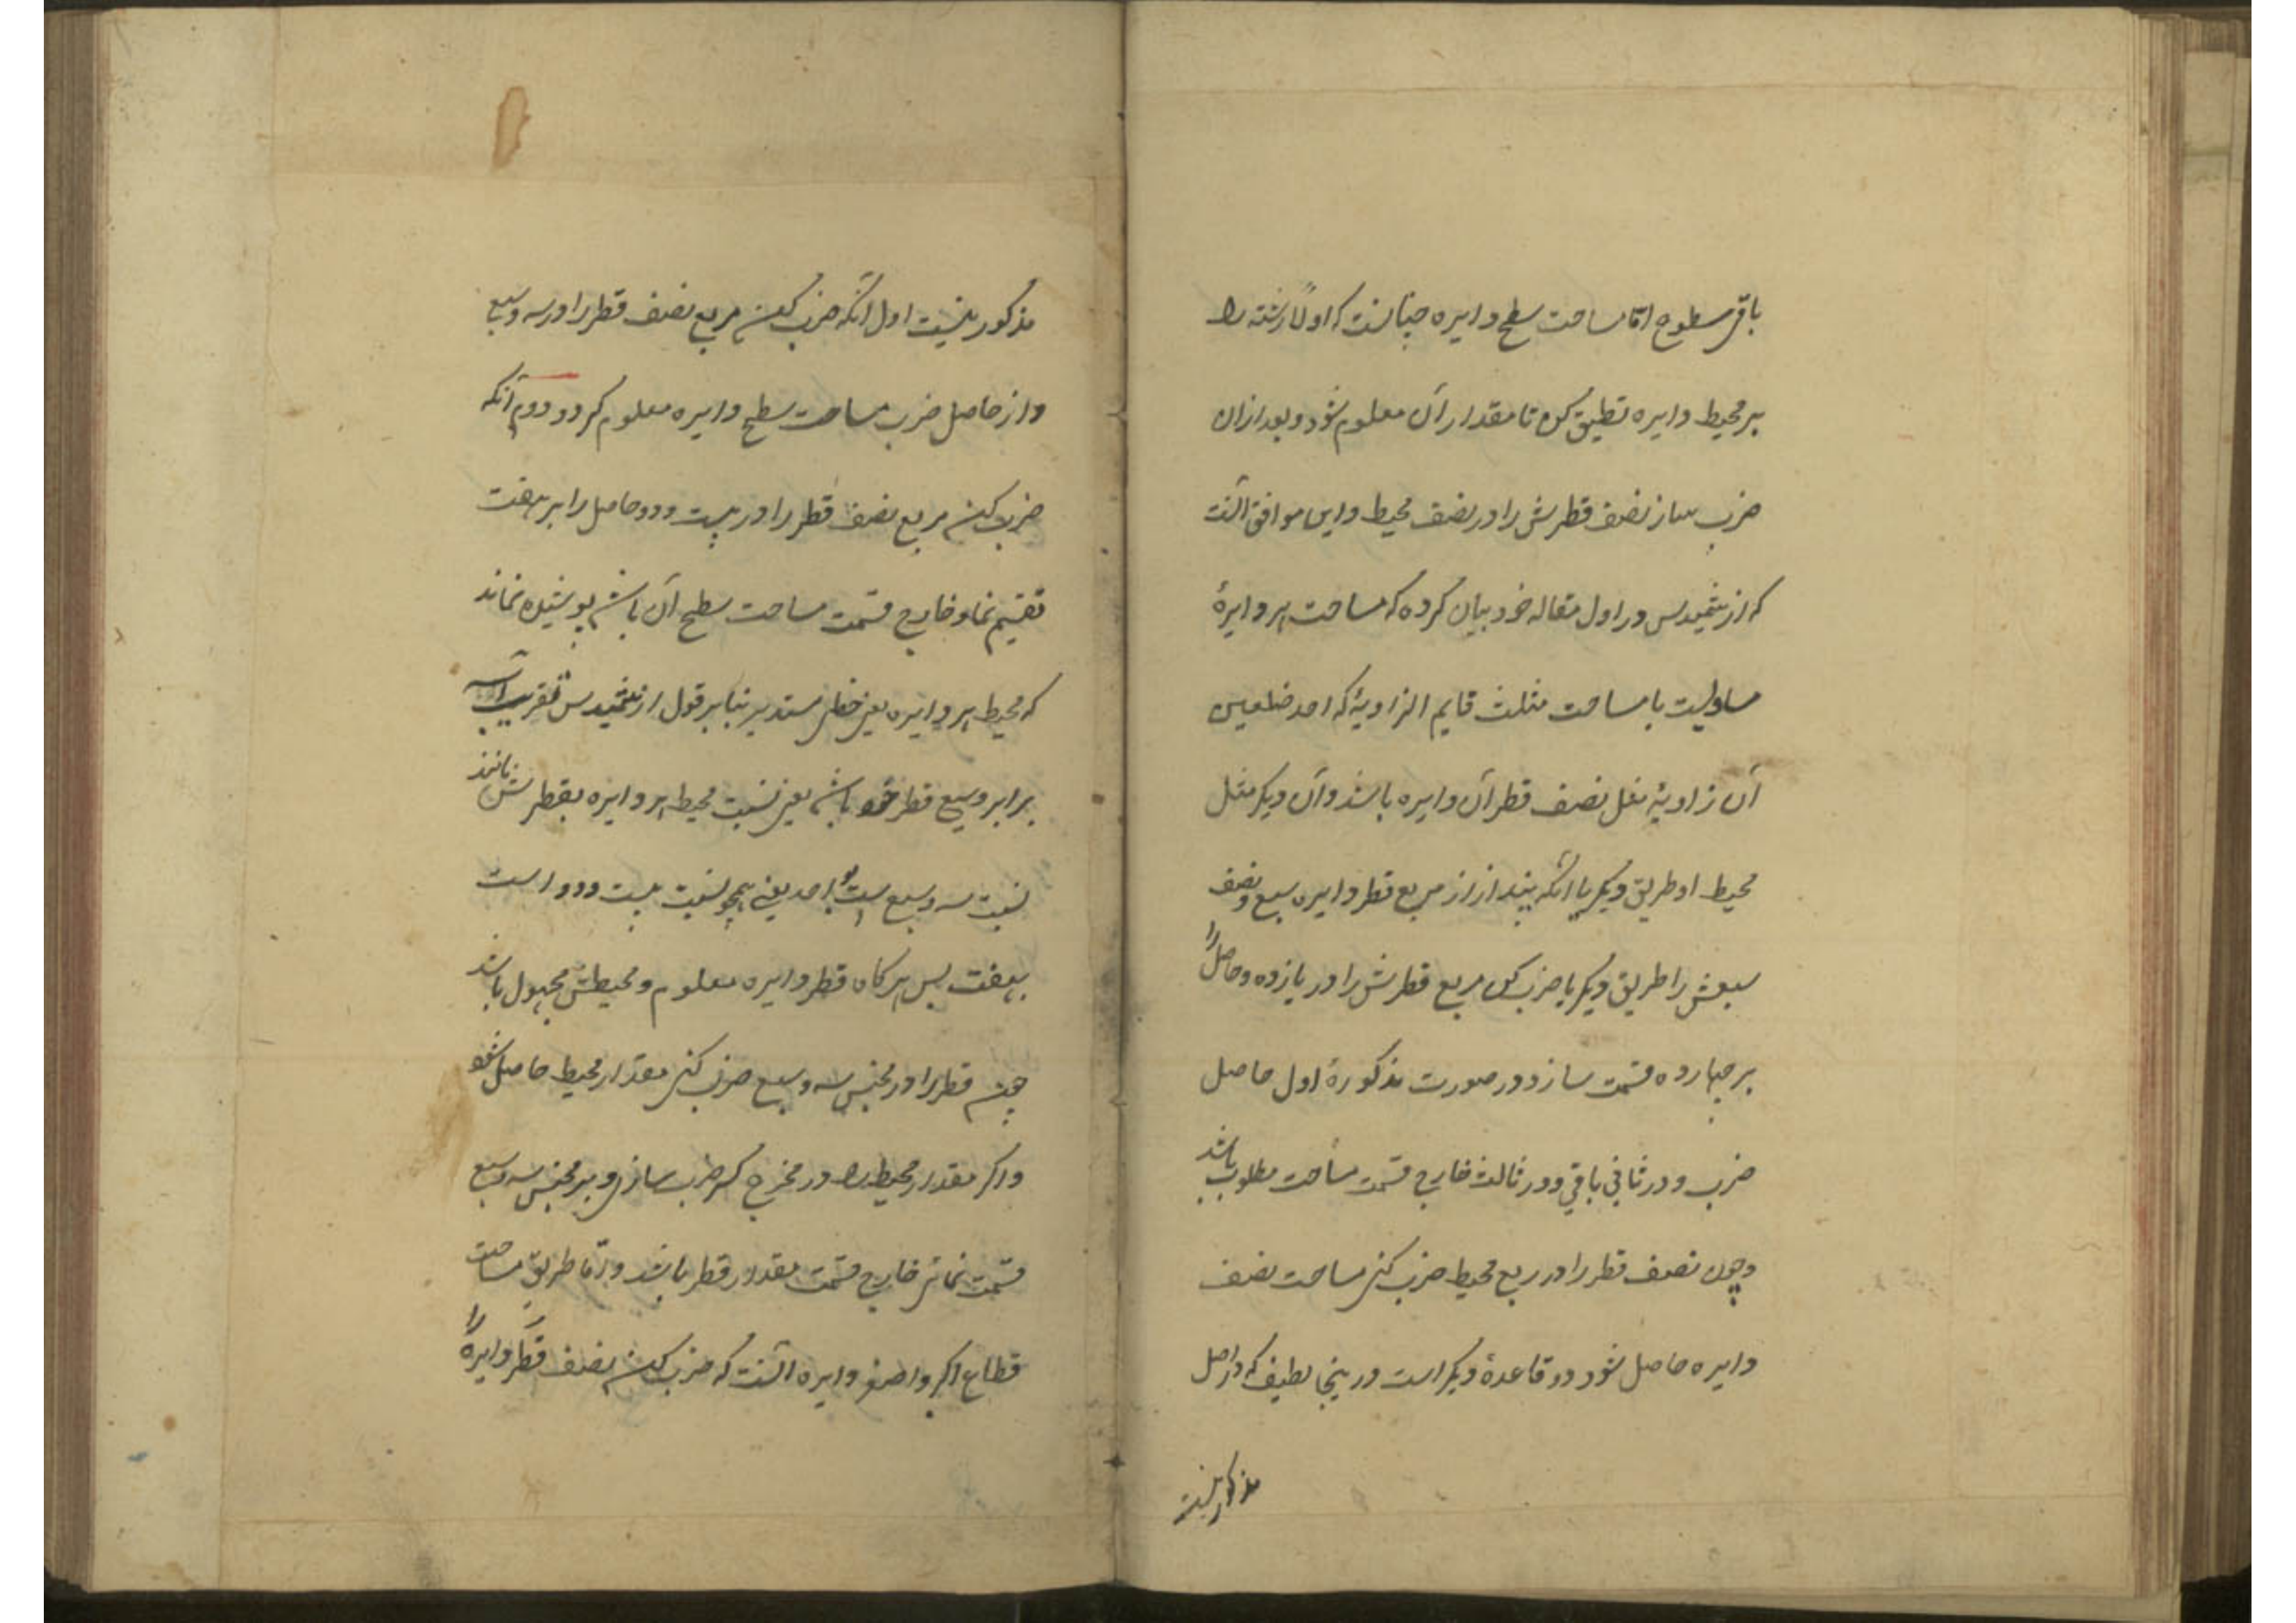 باقی سطوح امّا مساحت سطح دایره چنانست که اولاً رشته را
بر محیط دایره تطبیق کن تا مقدار آن معلوم شود و بعد ازان
ضرب ساز نصف قطرش را در نصف محیط و این موافق آنست
که ارشمیدس در اول مقاله خود بیان کرده که مساحت هر دایرهٔ
مساویست با مساحت مثلث قایم الزاویهٔ که احد ضلعین
آن زاویهٔ مثل نصف قطر آن دایره باشد و آن دیگر مثل
محیط او طریق دیگر یا آنکه بینداز از مربع قطر دایره سبع و نصف
سبعش را طریق دیگر یا ضرب کن مربع قطرش را در یازده و حاصل را
بر چهارده قسمت ساز و در صورت مذکورهٔ اول حاصل
ضرب و در ثانی باقی و در ثالث خارج قسمت مساحت مطلوب باشد
و چون نصف قطر را در ربع محیط ضرب کنی مساحت نصف
دایره حاصل شود دو قاعدهٔ دیگر است درینجا لطیف که در اصل
مذکور نیست
مذکور نیست اول آنکه ضرب کن مربع نصف قطر را در سه و سبع
و از حاصل ضرب مساحت سطح دایره معلوم گردد و دوم آنکه
ضرب کن مربع نصف قطر را در بیست و دو و حاصل را بر هفت
تقسیم نما و خارج قسمت مساحت سطح آن باشد پوشیده نماند
که محیط هر دایره یعنی خطی مستدیر بنا بر قول ارشمیدس بتقریب
برابر و سبع قطر خود باشد یعنی نسبت محیط هر دایره بقطرش مانند
نسبت سه و سبع است بواحد یعنی همچو نسبت بیست و دو است
بهفت پس هرگاه قطر دایره معلوم و محیطش مجهول باشد
چون قطر را در مجنس سه و سبع ضرب کنی مقدار محیط حاصل شود
و اگر مقدار محیط را در مخرج کسر ضرب سازی و بر مجنس سه و سبع
قسمت نمائی خارج قسمت مقدار قطر باشد و امّا طریق مساحت
قطاع اکبر و اصغر دایره آنست که ضرب کن نصف قطر دایره را